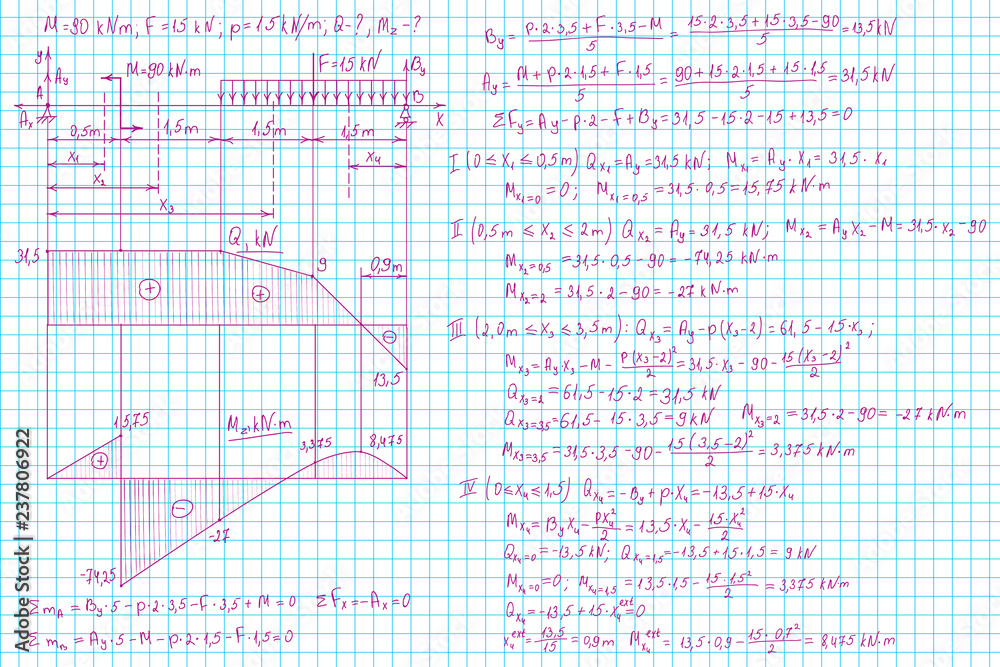 M=90 kNm; F=15 kN; p=15 kN/m; Q-?, Mz-?
y
Ay
M=90 kN·m
F=15 kN
By
A
B
Ax
x
0,5m
1,5m
1,5m
1,5m
x1
x4
x2
x3
Q, kN
31,5
9
0,9m
+
+
−
13,5
15,75
Mz, kN·m
3,375
8,475
+
−
-27
-74,25
Σ mA = By·5 - p·2·3,5 - F·3,5 + M = 0 ΣFx = -Ax = 0
Σ mB = Ay·5 - M - p·2·1,5 - F·1,5 = 0
By = (p·2·3,5 + F·3,5 - M)/5 = (15·2·3,5 + 15·3,5 - 90)/5 = 13,5 kN
Ay = (M + p·2·1,5 + F·1,5)/5 = (90 + 15·2·1,5 + 15·1,5)/5 = 31,5 kN
ΣFy = Ay - p·2 - F + By = 31,5 - 15·2 - 15 + 13,5 = 0
I (0 ≤ x1 ≤ 0,5m) Qx1 = Ay = 31,5 kN; Mx1 = Ay·x1 = 31,5·x1
Mx1=0 = 0; Mx1=0,5 = 31,5·0,5 = 15,75 kN·m
II (0,5m ≤ x2 ≤ 2m) Qx2 = Ay = 31,5 kN; Mx2 = Ay x2 - M = 31,5·x2 - 90
Mx2=0,5 = 31,5·0,5 - 90 = -74,25 kN·m
Mx2=2 = 31,5·2 - 90 = -27 kN·m
III (2,0m ≤ x3 ≤ 3,5m): Qx3 = Ay - p(x3-2) = 61,5 - 15·x3;
Mx3 = Ay·x3 - M - p(x3-2)²/2 = 31,5·x3 - 90 - 15(x3-2)²/2
Qx3=2 = 61,5 - 15·2 = 31,5 kN
Qx3=3,5 = 61,5 - 15·3,5 = 9 kN Mx3=2 = 31,5·2 - 90 = -27 kN·m
Mx3=3,5 = 31,5·3,5 - 90 - 15(3,5-2)²/2 = 3,375 kN·m
IV (0 ≤ x4 ≤ 1,5) Qx4 = -By + p·x4 = -13,5 + 15·x4
Mx4 = By x4 - px4²/2 = 13,5·x4 - 15·x4²/2
Qx4=0 = -13,5 kN; Qx4=1,5 = -13,5 + 15·1,5 = 9 kN
Mx4=0 = 0; Mx4=1,5 = 13,5·1,5 - 15·1,5²/2 = 3,375 kNm
Qx4 = -13,5 + 15·x4^ext = 0
x4^ext = 13,5/15 = 0,9m Mx4^ext = 13,5·0,9 - 15·0,7²/2 = 8,475 kN·m
Adobe Stock | #237806922